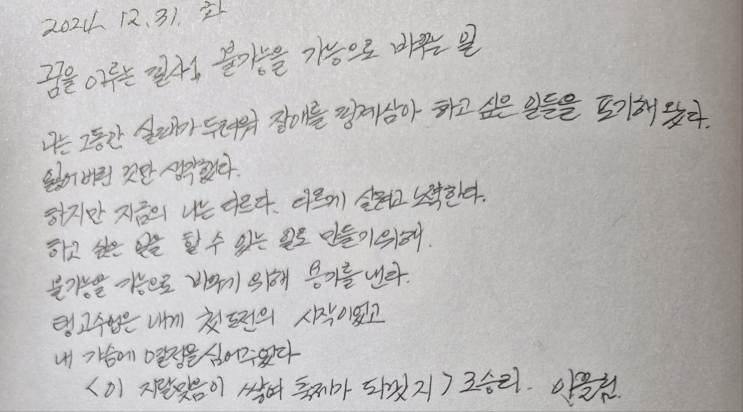 2024. 12. 31. 화
꿈을 이루는 필사1, 불가능을 가능으로 바꾸는 일
나는 그동안 실패가 두려워 장애를 핑계삼아 하고 싶은 일들을 포기해 왔다.
잃어버린 것만 생각했다.
하지만 지금의 나는 다르다. 다르게 살려고 노력한다.
하고 싶은 일을 할 수 있는 일로 만들기 위해.
불가능을 가능으로 바꾸기 위해 용기를 낸다.
탱고수업은 내게 첫 도전의 시작이었고
내 가슴에 열정을 심어주었다
<이 지랄맞음이 쌓여 축제가 되겠지> 조승리.